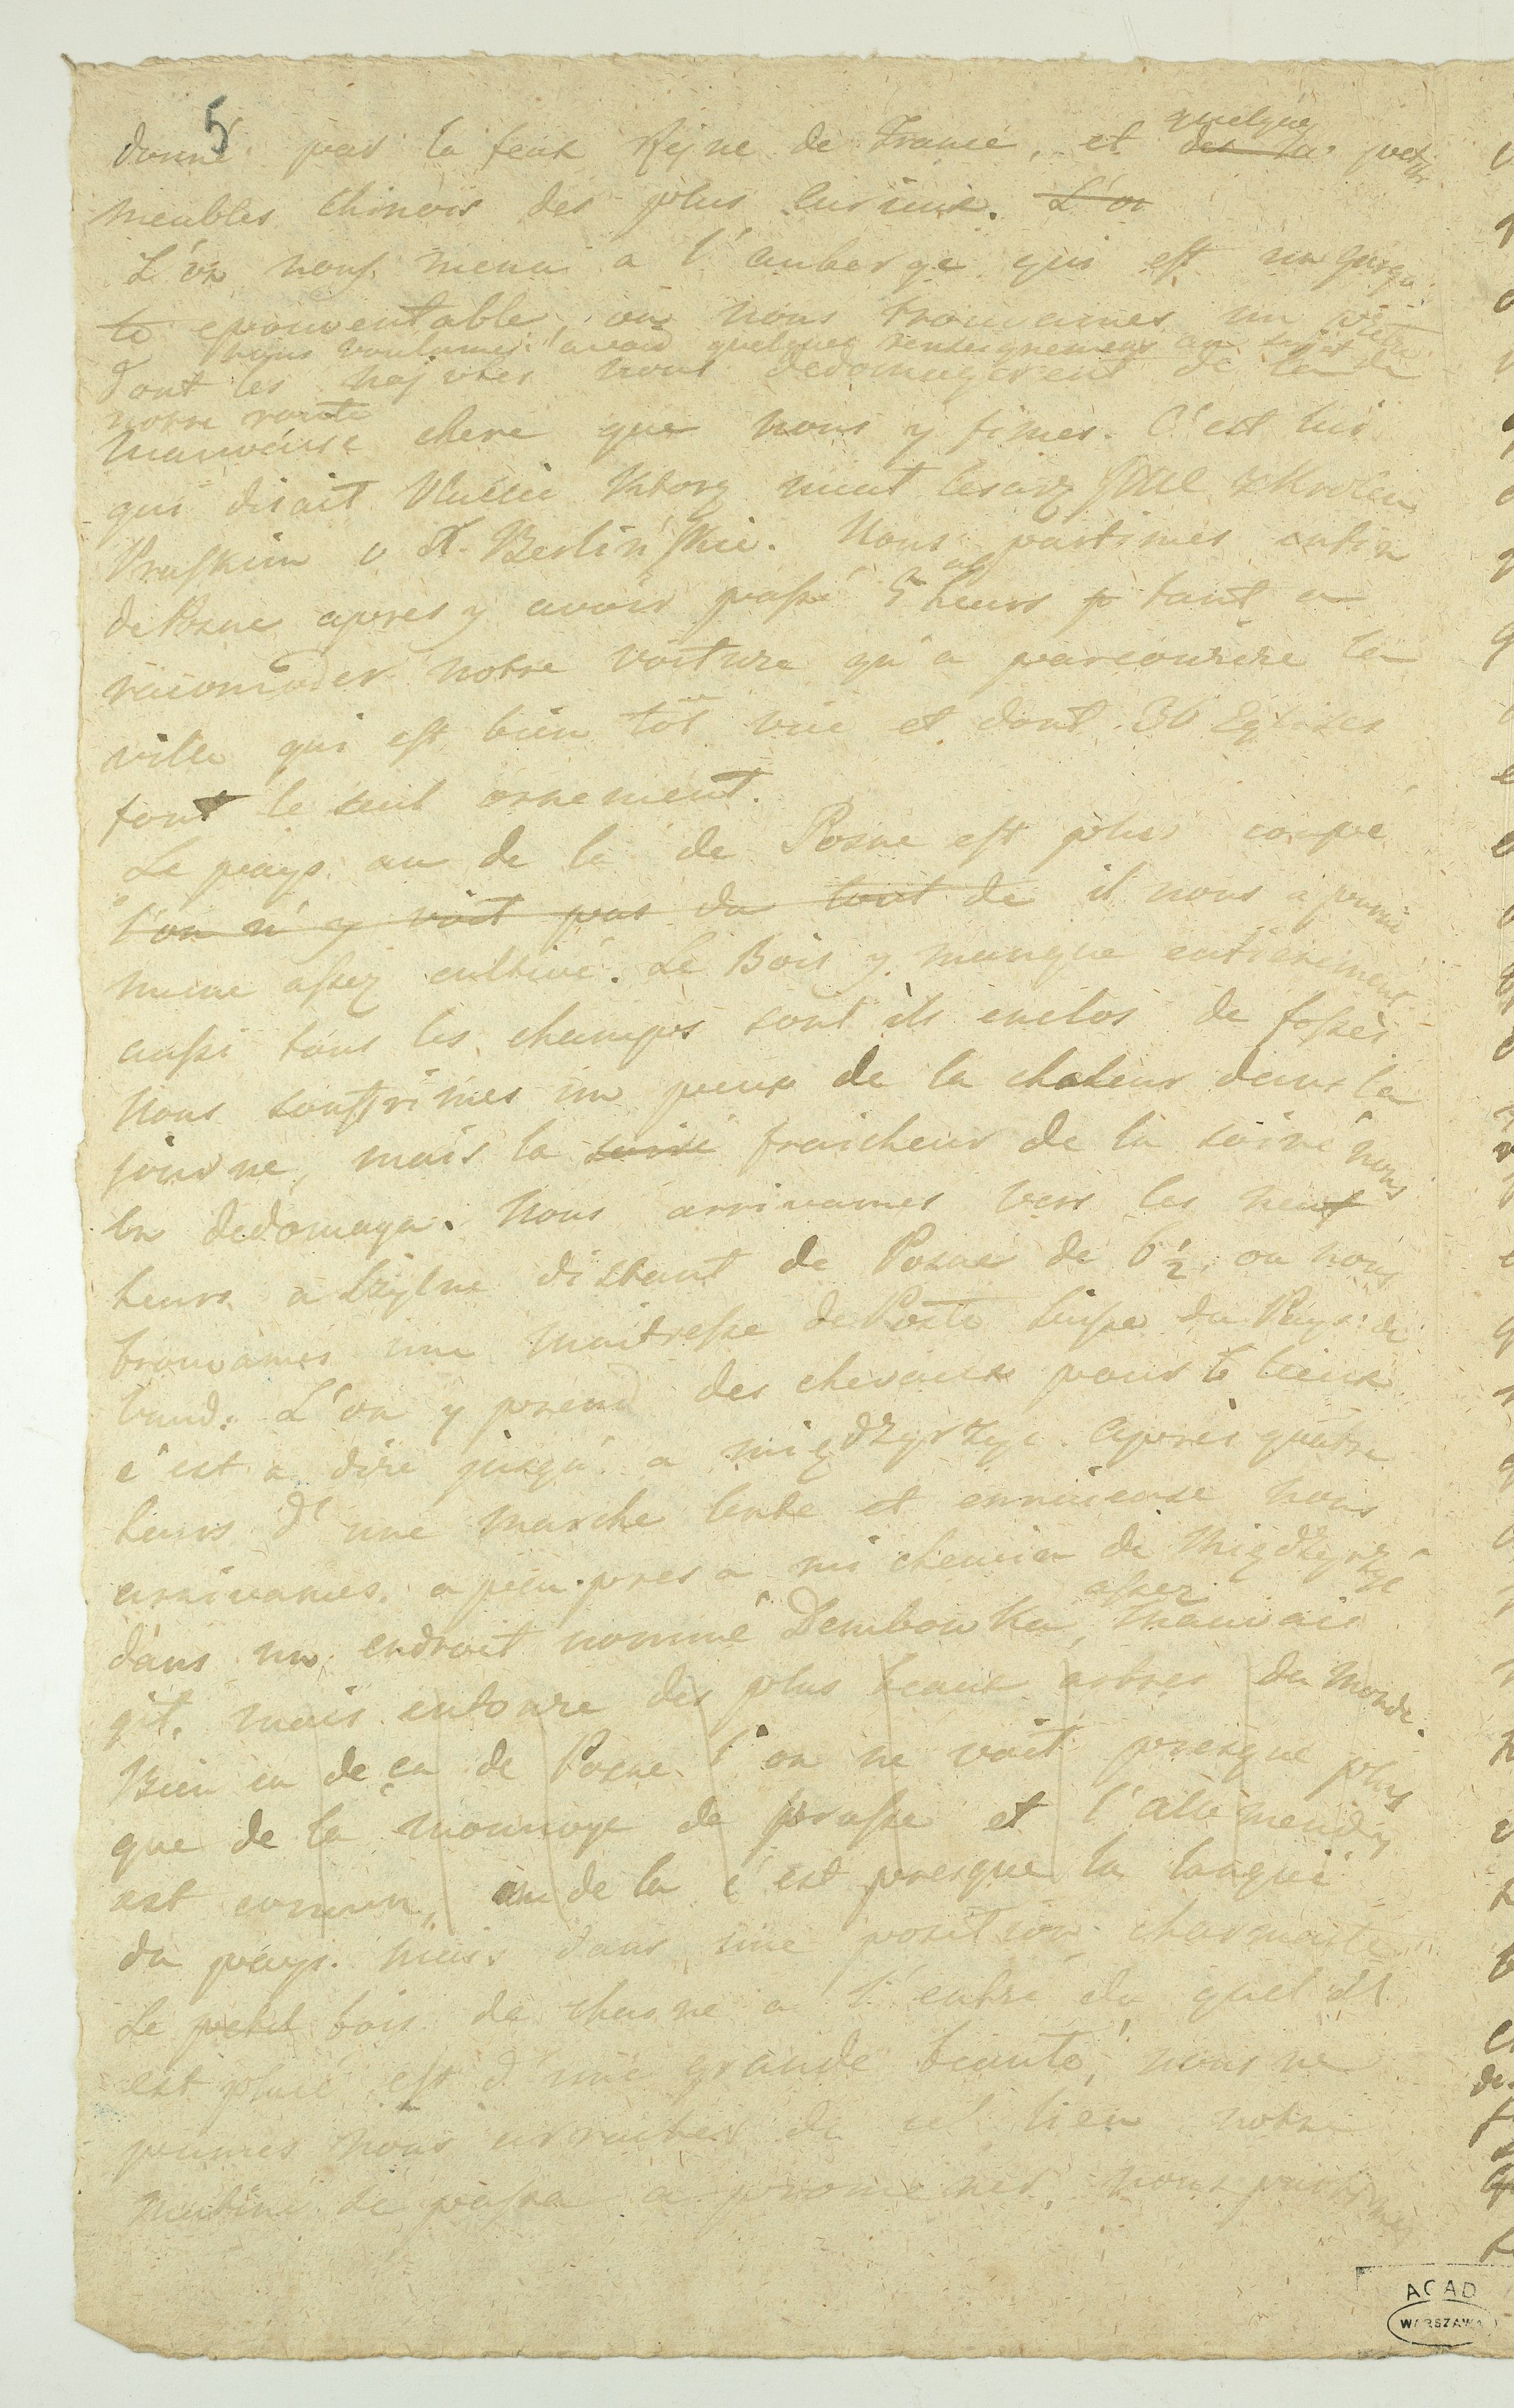 5
donné par la feue Rejne de France, et des la quelques petits
meubles Chinois des plus curieux. L'on
L'on nous mena a l'auberge qui est un gargo
te epouventable, ou nous trouvames un
nous voulumes avoir quelques renseignemens au sujet de
dont les nous dedomagerent de la
notre route
mauvaise chere que nous y fimes. C'est lui
qui disait Ktorz
Pruskim Berlinskie. Nous partimes enfin
de Posne apres y avoir passé 5 heurs p tant a
racomoder notre voiture qu'a parcourire la
ville qui est bien tôt vue et dont 36 Eglises
font le seul ornement.
Le pays au de la de Posne est plus coupé
l'on n'y voit pas du tout de il nous a parru
meme assez cultivé. Le Bois y manque entierement
aussi tous les champs sont ils enclos de fossés
Nous souffrimes un peux de la chaleur dans la
journe, mais la soiré fraicheur de la soiré nous
en dedomaga. Nous arrivames vers les neuf
heurs a distant de Posne de 6 1/2, ou nous
trouvames une maitresse de Poste Suisse du Pays de
Vaud. L'on y prend des chevaux pour 6 lieux
c'est a dire jusqu' a międzyrzyc. apres quatre
heurs d' une marche lente et ennuieuse nous
arrivames a peu pres a mi chemin de Międzyrzyc
dans un endroit nommé Dembowka, assez mauvais
git, mais entoure des plus beaux arbres du monde.
Bien en de ça de Posne l'on ne voit presque plus
que de la monnoye de prusse et l'allemend y
est comun, au de la c'est presque la langue
du pays. mais dans une position charmante
Le petit bois de chesne a l'entré du quel il
est placé est d'une grande beauté, nous ne
pumes nous arracher de ce lieu notre
matiné se passa a promener, nous partimes
ACAD
WARSZAWA